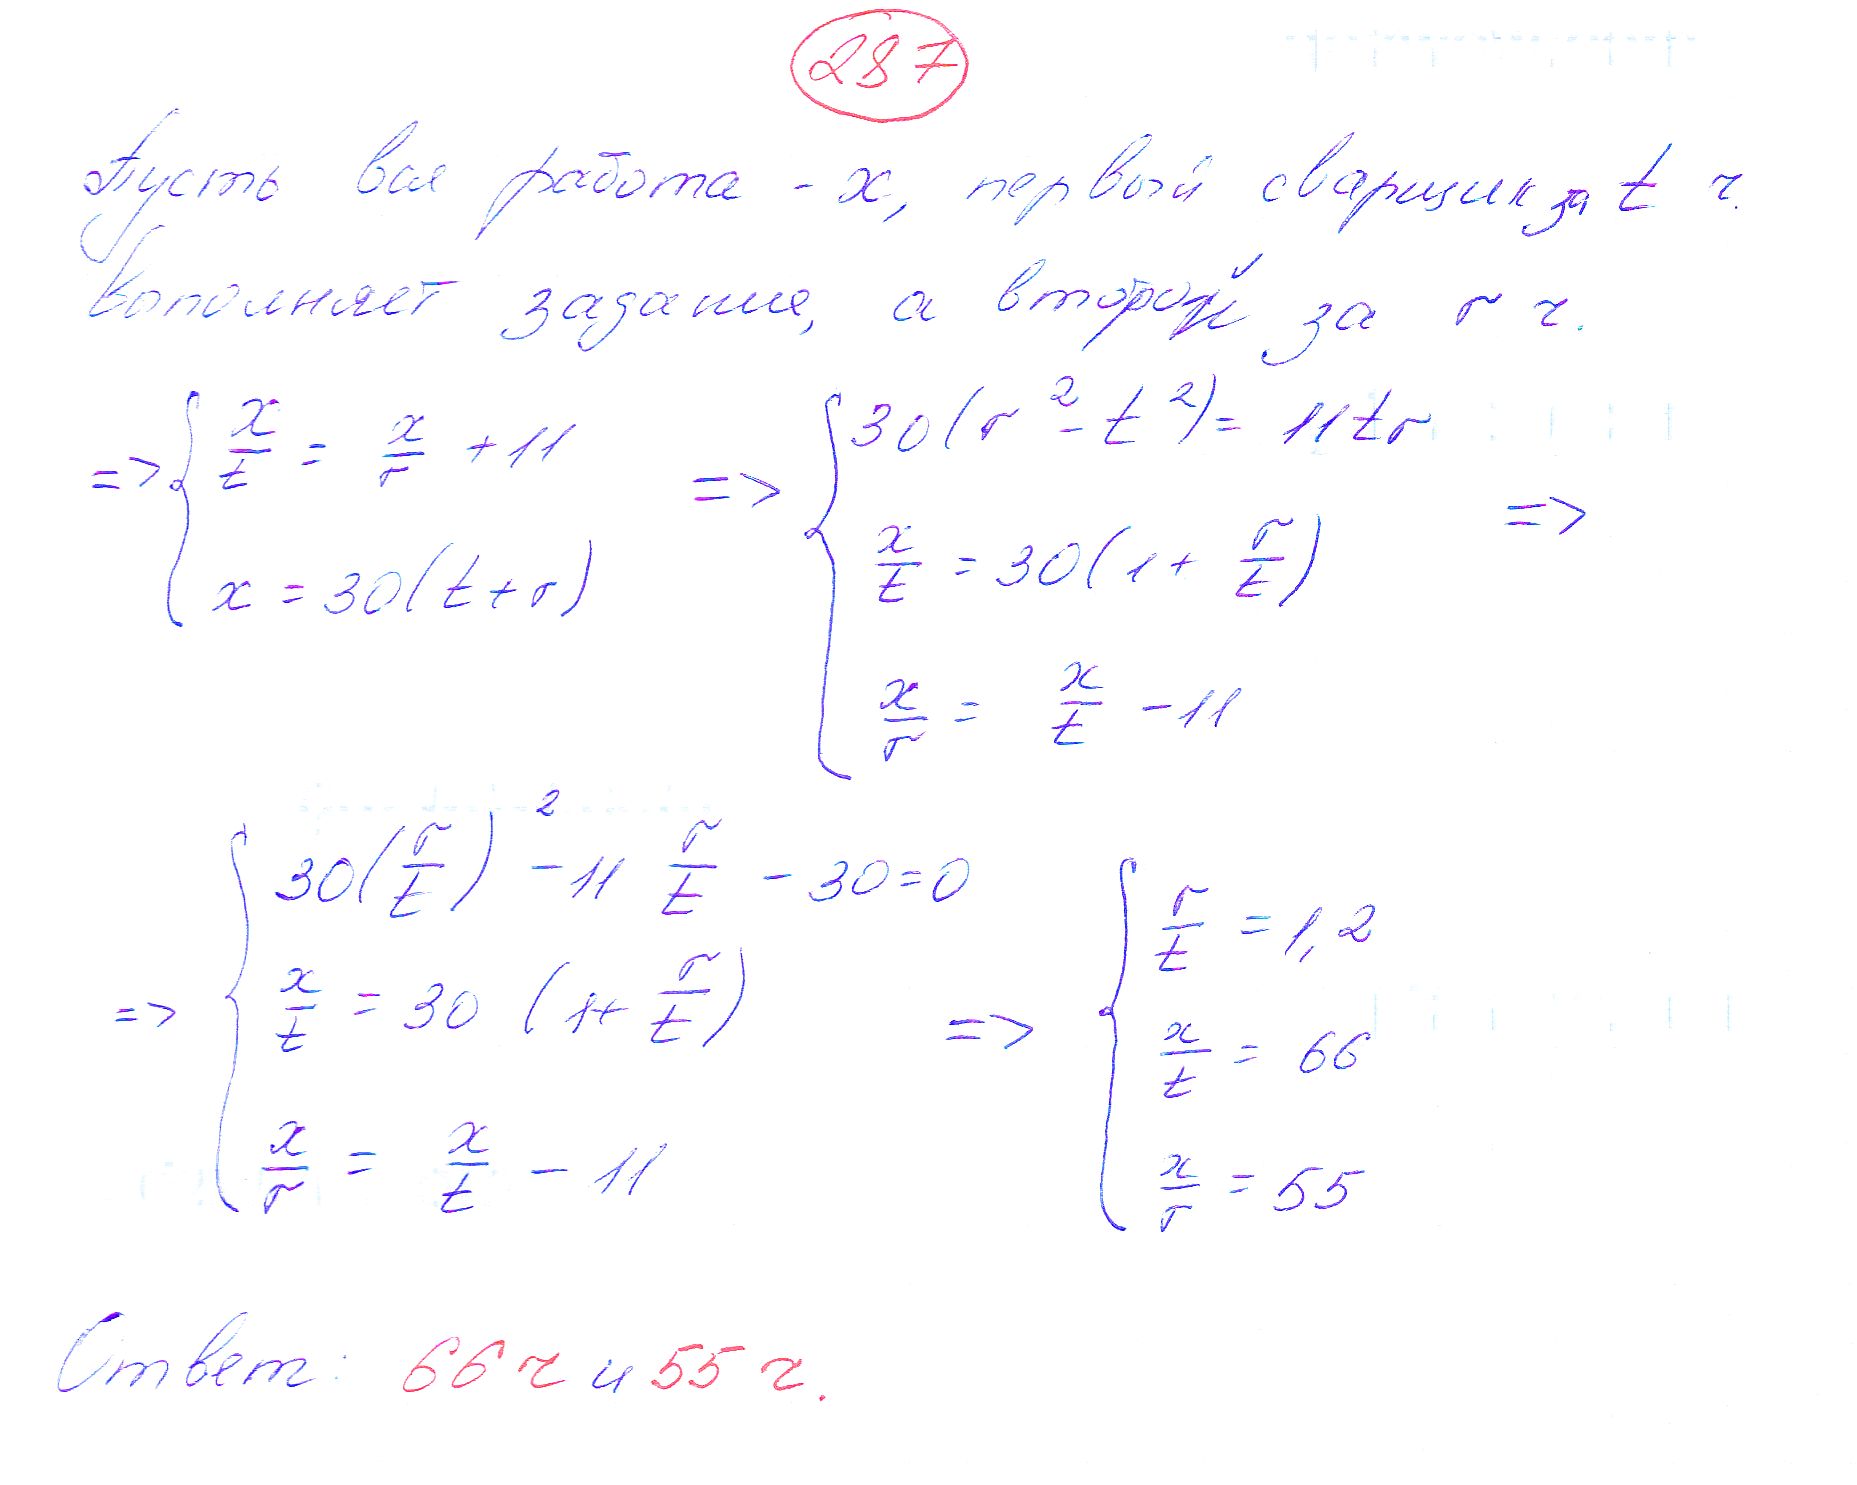 287
Пусть вся работа - x, первый сварщик за t ч.
выполняет задание, а второй за r ч.
=> { x/t = x/r + 11
x = 30(t+r)
=> { 30(r² - t²) = 11tr
x/t = 30(1 + r/t)
x/r = x/t - 11
=>
=> { 30(r/t)² - 11 r/t - 30 = 0
x/t = 30 (1 + r/t)
x/r = x/t - 11
=> { r/t = 1,2
x/t = 66
x/r = 55
Ответ: 66 ч и 55 ч.